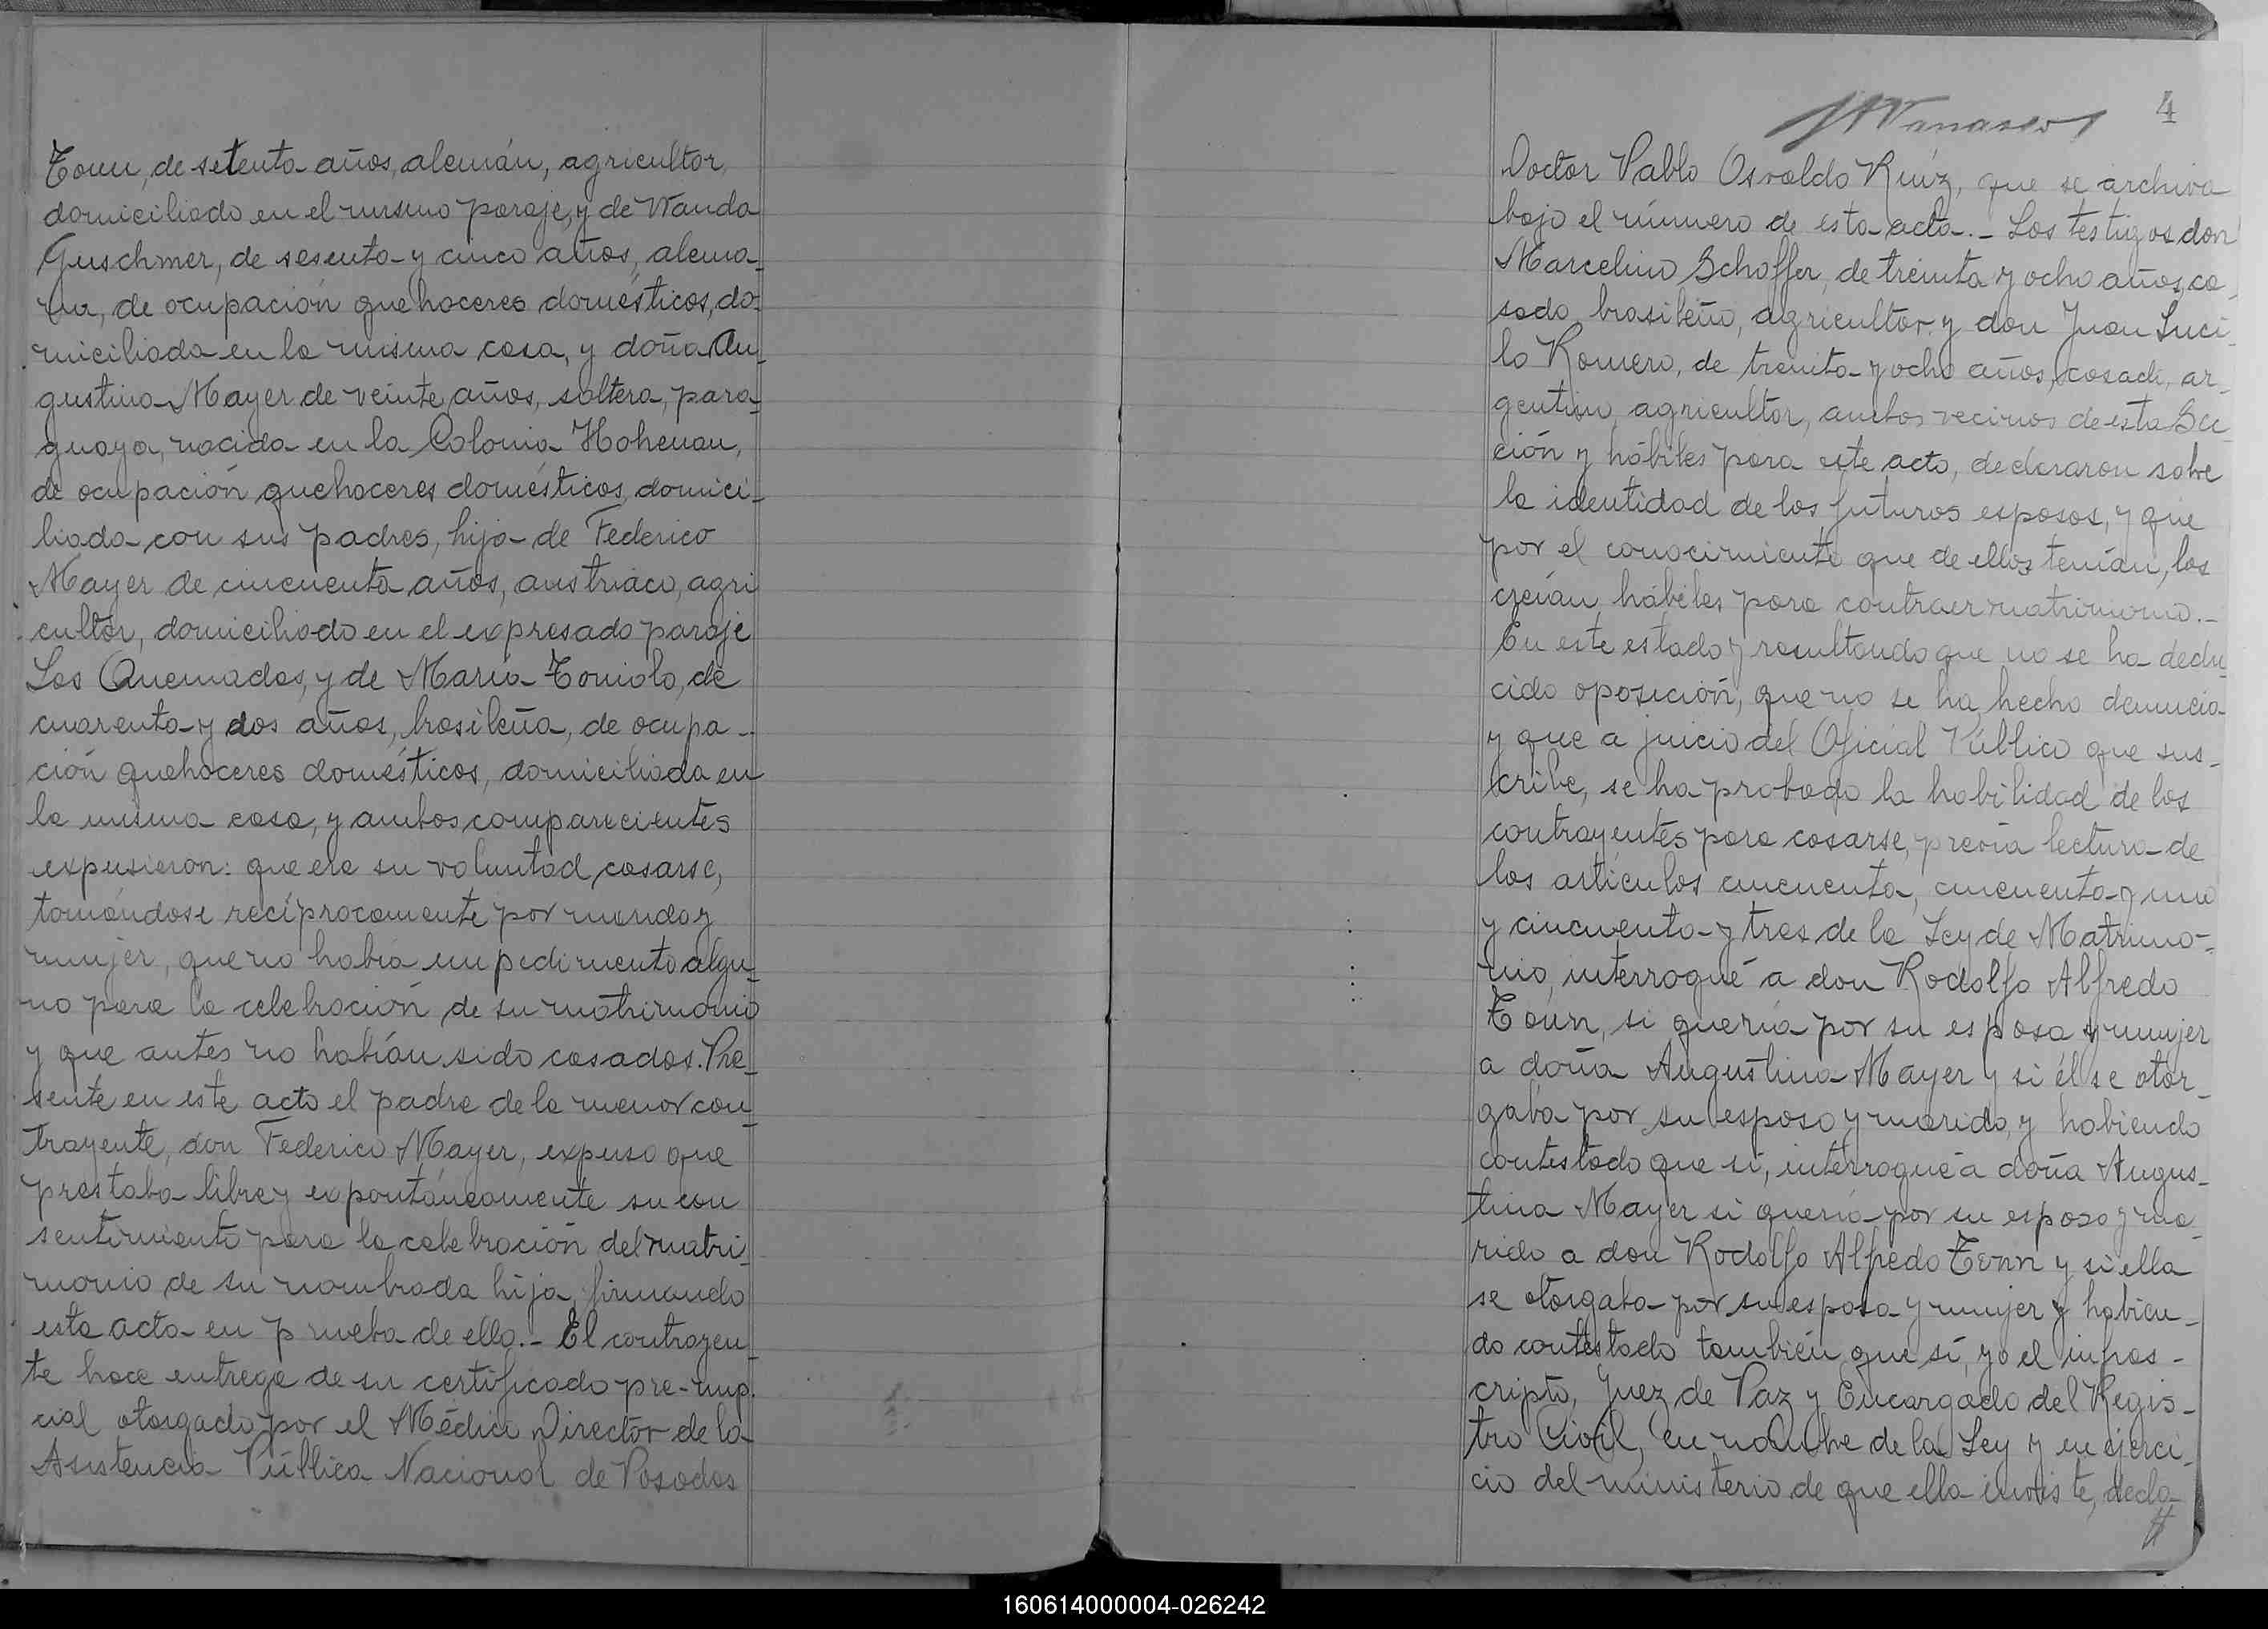 Tonn, de setenta años, alemán, agricultor,
domiciliado en el mismo paraje, y de Wanda
Guschmer, de sesenta y cinco años, alema-
na, de ocupación quehaceres domésticos, do-
miciliada en la misma casa, y doña Au-
gustina Mayer de veinte años, soltera, para-
guaya, nacida en la Colonia Hohenau,
de ocupación quehaceres domésticos, domici-
liada con sus padres, hija de Federico
Mayer de cincuenta años, austriaco, agri
cultor, domiciliado en el expresado paraje
Los Quemados, y de María Toniolo, de
cuarenta y dos años, brasileña, de ocupa-
ción quehaceres domésticos, domiciliada en
la misma casa, y ambos comparecientes
expusieron: que era su voluntad casarse,
tomándose recíprocamente por marido y
mujer, que no había impedimento algu-
no para la celebración de su matrimonio
y que antes no habían sido casados. Pre-
sente en este acto el padre de la menor con-
trayente, don Federico Mayer, expuso que
prestaba libre y expontáneamente su con
sentimiento para la celebración del matri-
monio de su nombrada hija, firmando
esta acta en prueba de ello.- El contrayen-
te hace entrega de su certificado pre-nup.
cial otorgado por el Médico Director de la
Asistencia Pública Nacional de Posadas
4
Doctor Pablo Osvaldo Ruíz, que se archiva
bajo el número de esta acta.- Los testigos don
Marcelino Schoffer, de treinta y ocho años, ca-
sado, brasileño, agricultor y don Juan Luci-
lo Romero, de treinta y ocho años, casado, ar-
gentino, agricultor, ambos vecinos de esta Sec-
ción y hábiles para este acto, declararon sobre
la identidad de los futuros esposos, y que
por el conocimiento que de ellos tenían, los
creían hábiles para contraer matrimonio.-
En este estado y resultando que no se ha dedu-
cido oposición, que no se ha hecho denuncia
y que a juicio del Oficial Público que sus-
cribe, se ha probado la habilidad de los
contrayentes para casarse, previa lectura de
los artículos cincuenta, cincuenta y uno
y cincuenta y tres de la Ley de Matrimo-
nio, interrogué a don Rodolfo Alfredo
Tonn, si quería por su esposa y mujer
a doña Augustina Mayer y si él se otor-
gaba por su esposo y marido, y habiendo
contestado que sí, interrogué a doña Augus-
tina Mayer si quería por su esposo y ma-
rido a don Rodolfo Alfredo Tonn y si ella
se otorgaba por su esposa y mujer y habien-
do contestado también que sí, yo el infras-
cripto, Juez de Paz y Encargado del Regis-
tro Civil, en nombre de la Ley y en ejerci-
cio del ministerio de que ella inviste, decla-
#
160614000004-026242